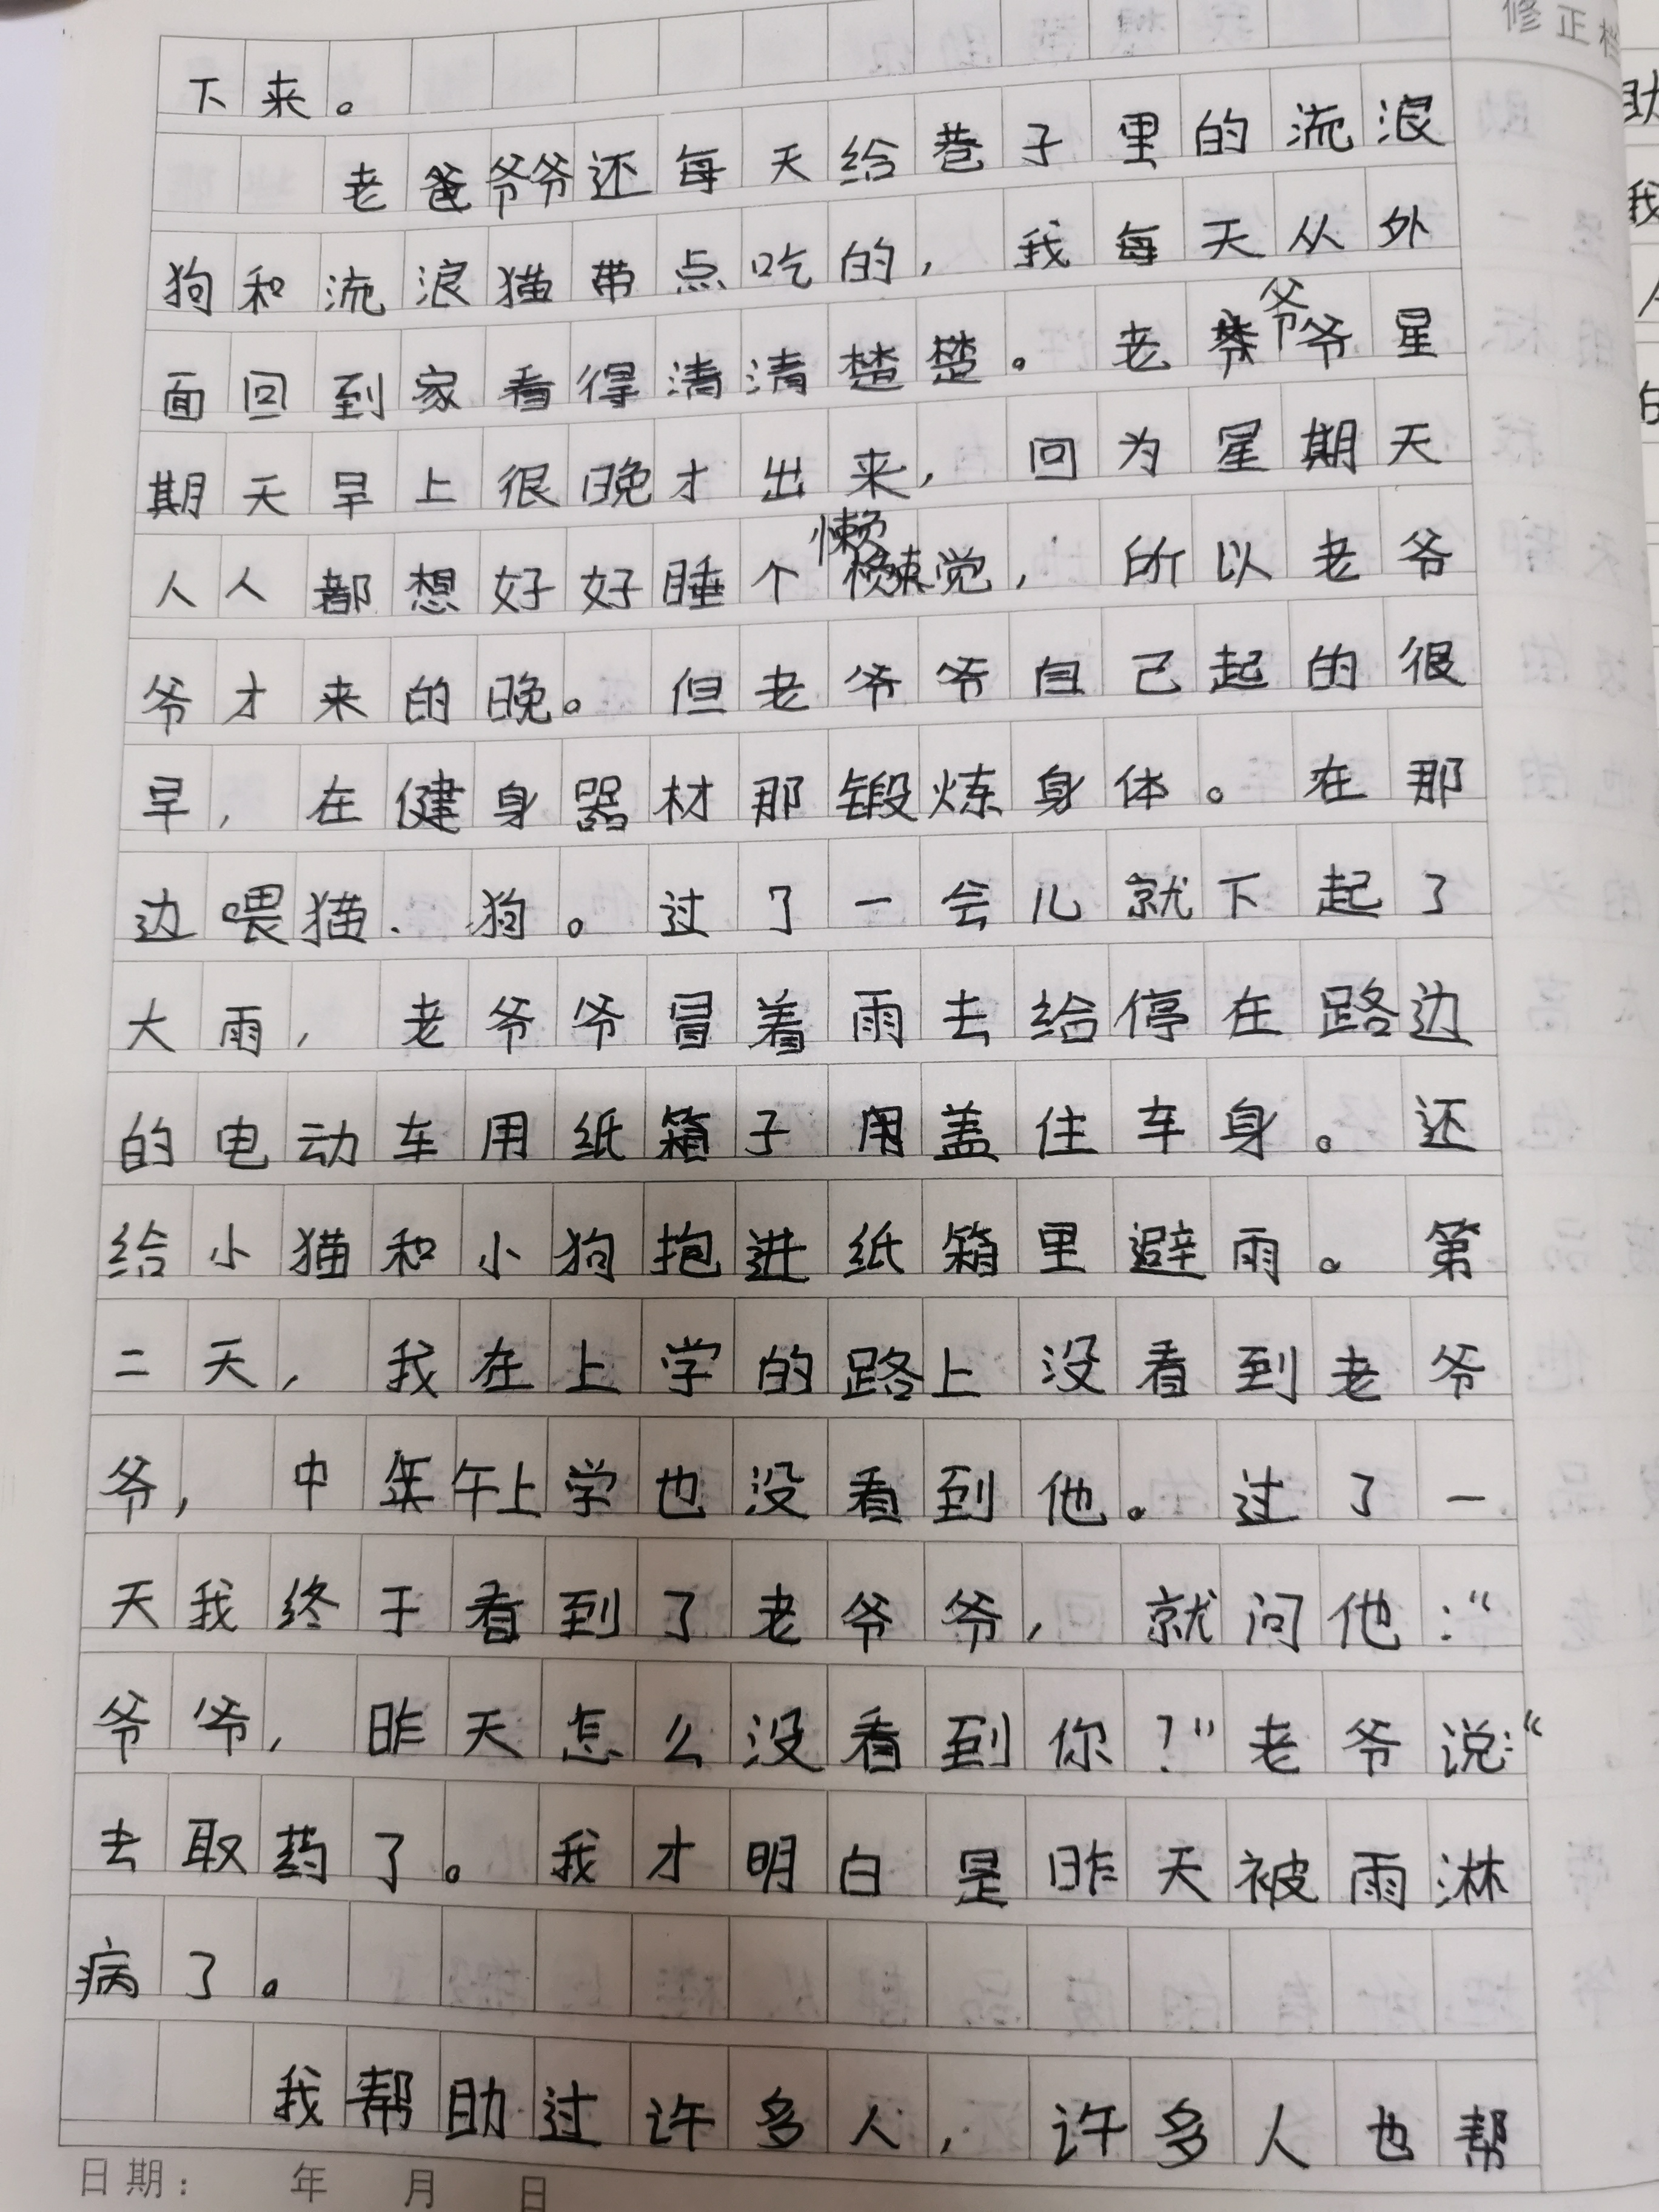 修正栏
下来。
老爷爷还每天给巷子里的流浪
狗和流浪猫带点吃的，我每天从外
面回到家看得清清楚楚。老爷爷星
期天早上很晚才出来，回为星期天
人人都想好好睡个懒觉，所以老爷
爷才来的晚。但老爷爷自己起的很
早，在健身器材那锻炼身体。在那
边喂猫、狗。过了一会儿就下起了
大雨，老爷爷冒着雨去给停在路边
的电动车用纸箱子盖住车身。还
给小猫和小狗抱进纸箱里避雨。第
二天，我在上学的路上没看到老爷
爷，中午上学也没看到他。过了一
天我终于看到了老爷爷，就问他：“
爷爷，昨天怎么没看到你？”老爷说：“
去取药了。我才明白是昨天被雨淋
病了。
我帮助过许多人，许多人也帮
日期：　年　月　日